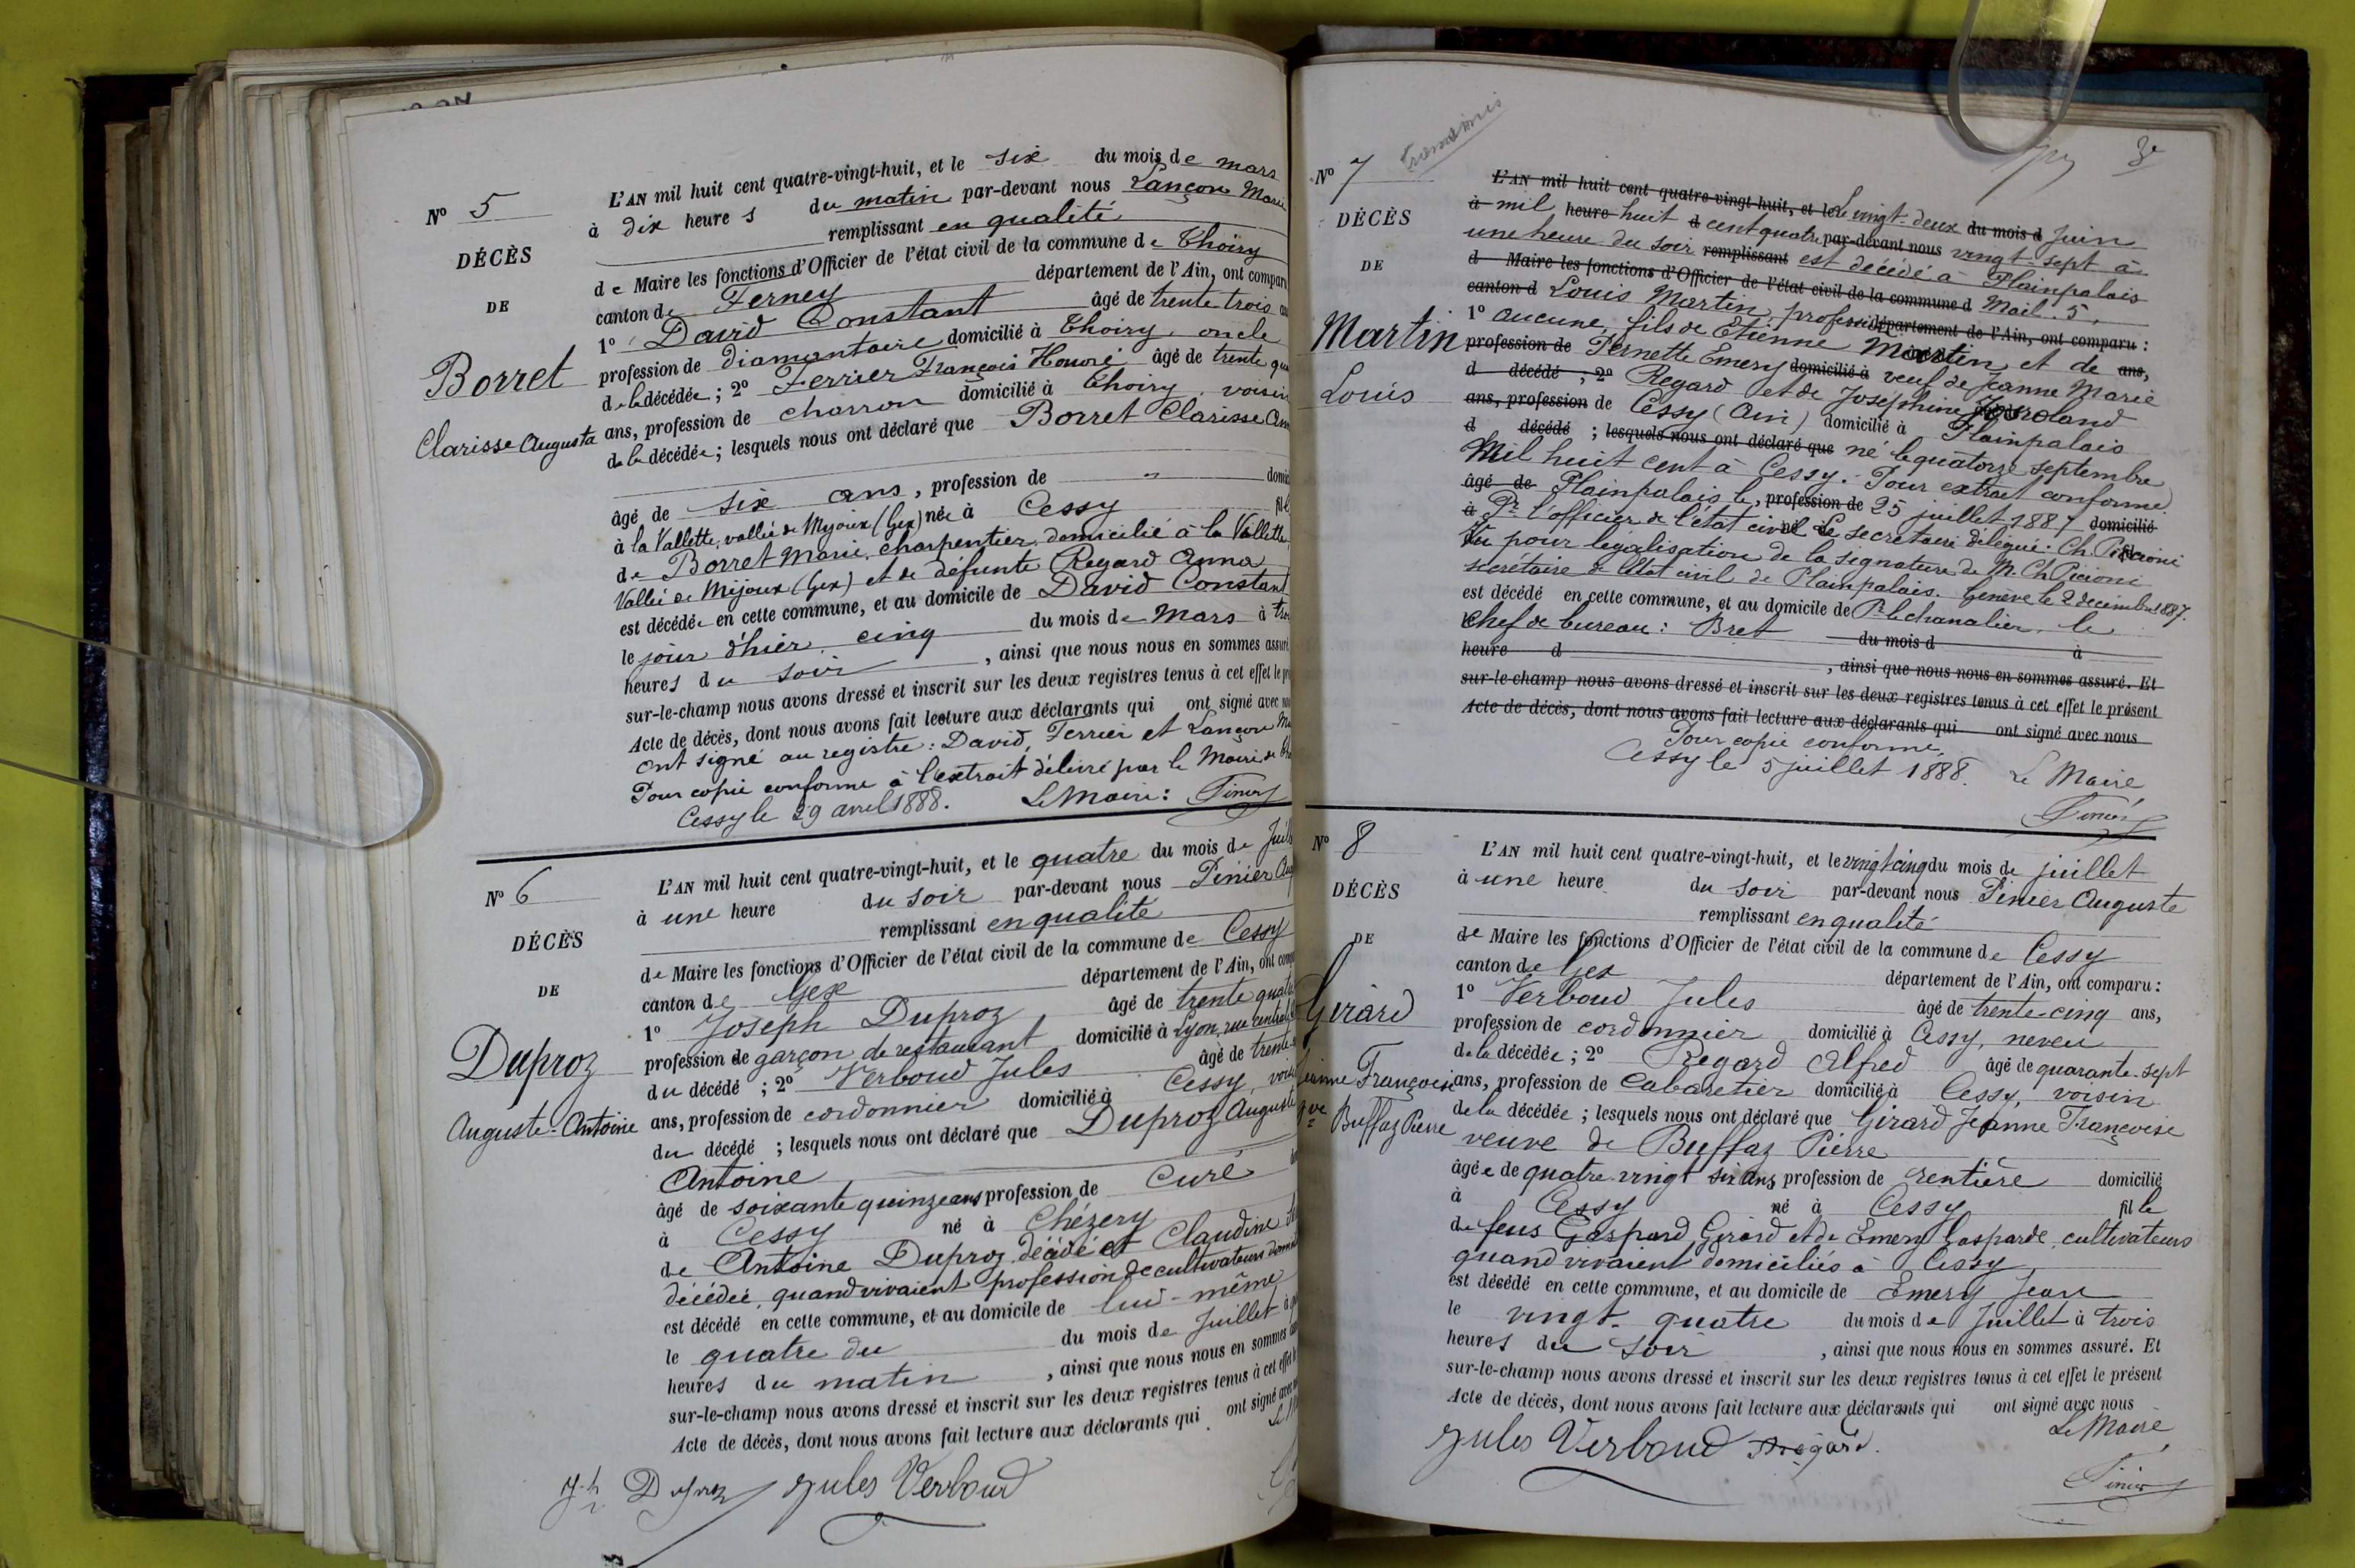 N° 5
DÉCÈS
DE
Borret
Clarisse Augusta
L'AN mil huit cent quatre-vingt-huit, et le six du mois de mars
à dix heures du matin par-devant nous Lançon Marie
remplissant en qualité
de Maire les fonctions d'Officier de l'état civil de la commune de Thoiry
canton de Ferney département de l'Ain, ont comparu
1° David Constant âgé de trente trois
profession de diamantaire domicilié à Thoiry, oncle
de la décédée; 2° Ferrier François Honoré âgé de trente
ans, profession de charron domicilié à Thoiry, voisin
de la décédée; lesquels nous ont déclaré que Borret Clarisse
âgé de six ans, profession de " domici
à la Vallette, vallée de Myoux (Gex) née à Cessy fille
de Borret Marie, charpentier, domicilié à la Vallette,
Vallée de Mijoux (Gex) et de défunte Regard Anna
est décédée en cette commune, et au domicile de David Constant
le jour d'hier, cinq du mois de Mars à trois
heures du soir, ainsi que nous nous en sommes assuré
sur-le-champ nous avons dressé et inscrit sur les deux registres tenus à cet effet le
Acte de décès, dont nous avons fait lecture aux déclarants qui ont signé avec nous
ont signé au registre: David, Ferrier et Lançon
Pour copie conforme à l'extrait délivré par le Maire de
Cessy le 29 avril 1888. Le Maire: Pinier
N° 6
DÉCÈS
DE
Duproz
Auguste-Antoine
L'AN mil huit cent quatre-vingt-huit, et le quatre du mois de Juil
à une heure du soir par-devant nous Pinier Aug
remplissant en qualité
de Maire les fonctions d'Officier de l'état civil de la commune de Cessy
canton de Gex département de l'Ain, ont comp
1° Joseph Duproz âgé de trente quat
profession de garçon de restaurant domicilié à Lyon, rue centrale
du décédé; 2° Verboud Jules âgé de trente
ans, profession de cordonnier domicilié à Cessy, vois
du décédé; lesquels nous ont déclaré que Duproz Auguste
Antoine
âgé de soixante quinze ans profession de Curé
à Cessy né à Chézery
de Antoine Duproz décédé et Claudine
décédée, quand vivaient profession de cultivateurs
est décédé en cette commune, et au domicile de lui-même
le quatre du du mois de Juillet à
heures du matin, ainsi que nous nous en sommes
sur-le-champ nous avons dressé et inscrit sur les deux registres tenus à cet effet le
Acte de décès, dont nous avons fait lecture aux déclarants qui ont signé avec
Jh Duproz Jules Verboud
N° 7
DÉCÈS
DE
Martin
Louis
3e
L'AN mil huit cent quatre-vingt-huit, et le Le vingt-deux du mois d Juin
à mil heure huit d cent quatre par-devant nous vingt-sept à
une heure du soir remplissant est décédé à Plainpalais
d Maire les fonctions d'Officier de l'état civil de la commune d Mail. 5,
canton d Louis Martin, profession département de l'Ain, ont comparu:
1° aucune, fils de Etienne Martin, et de
profession de Pernette Emery domicilié à veuf de Jeanne Marie ans,
d décédé; 2° Regard et de Joséphine Jarroland
ans, profession de Cessy (Ain) domicilié à Plainpalais
d décédé; lesquels nous ont déclaré que né le quatorze septembre
Mil huit cent à Cessy. Pour extrait conforme
âgé de Plainpalais le, profession de 25 juillet 1887 domicilié
à Pr l'officier de l'état civil Le secrétaire délégué: Ch. Picioni
Vu pour législation de la signature de M. Ch Picioni
secrétaire de l'état civil de Plainpalais. Genève le 2 décembre 1887.
est décédé en cette commune, et au domicile de Pr le chancelier, le
chef de bureau: Bret du mois d à
heure d, ainsi que nous nous en sommes assuré. Et
sur-le-champ nous avons dressé et inscrit sur les deux registres tenus à cet effet le présent
Acte de décès, dont nous avons fait lecture aux déclarants qui ont signé avec nous
Pour copie conforme,
Cessy le 5 juillet 1888. Le Maire
Pinier
N° 8
DÉCÈS
DE
Girard
Jeanne Françoise
ve Buffaz Pierre
L'AN mil huit cent quatre-vingt-huit, et le vingt cinq du mois de juillet
à une heure du soir par-devant nous Pinier Auguste
remplissant en qualité
de Maire les fonctions d'Officier de l'état civil de la commune de Cessy
canton de Gex département de l'Ain, ont comparu:
1° Verboud Jules âgé de trente-cinq ans,
profession de cordonnier domicilié à Cessy, neveu
de la décédée; 2° Regard Alfred âgé de quarante-sept
ans, profession de Cabaretier domicilié à Cessy, voisin
de la décédée; lesquels nous ont déclaré que Girard Jeanne Françoise
veuve de Buffaz Pierre
âgée de quatre vingt six ans profession de rentière domicilié
à Cessy né à Cessy fille
de feus Gaspard Girard et de Emery Gasparde, cultivateurs
quand vivaient domiciliés à Cessy
est décédé en cette commune, et au domicile de Emery Jean
le vingt-quatre du mois de Juillet à trois
heures du soir, ainsi que nous nous en sommes assuré. Et
sur-le-champ nous avons dressé et inscrit sur les deux registres tenus à cet effet le présent
Acte de décès, dont nous avons fait lecture aux déclarants qui ont signé avec nous
Le Maire
Jules Verboud Regard.
Pinier